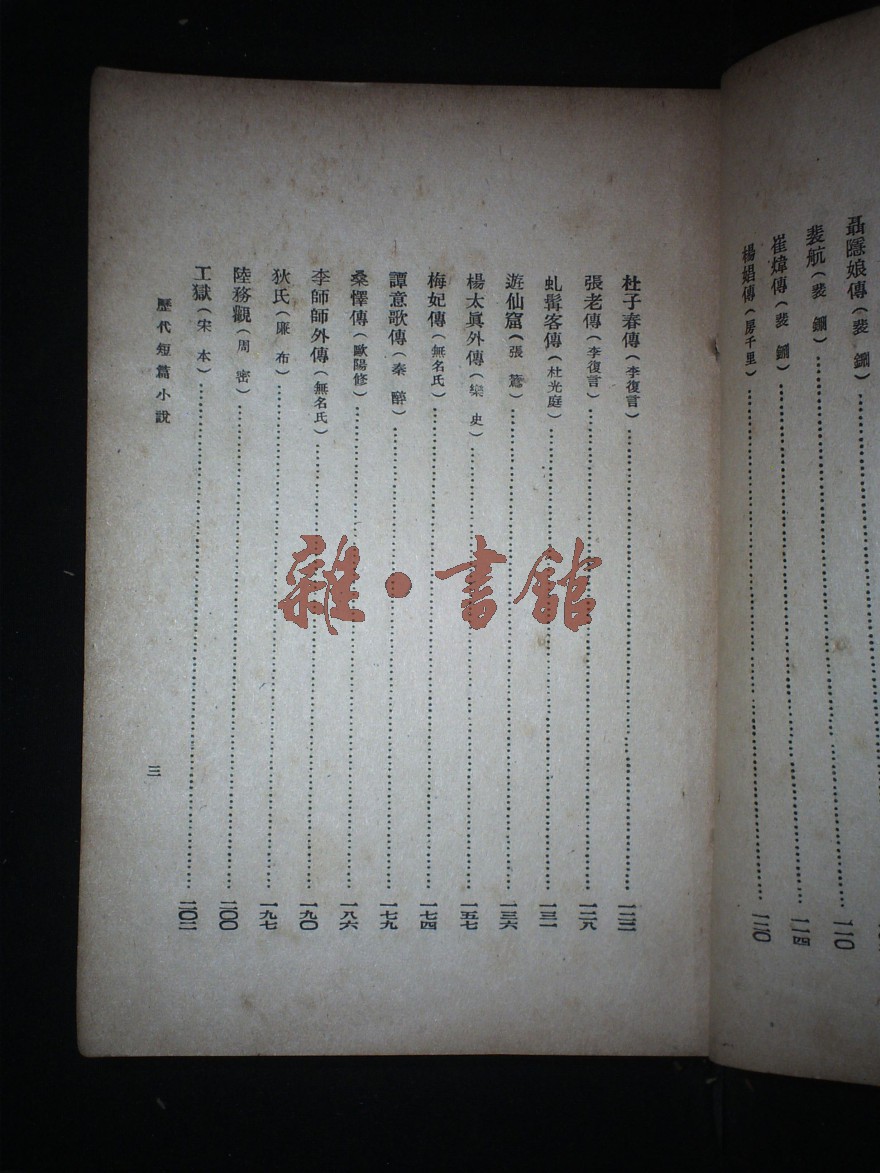 聶隱娘傳(裴鉶)
裴航(裴鉶)……一一〇
崔煒傳(裴鉶)……一一四
楊娼傳(房千里)……一二〇
杜子春傳(李復言)……一二二
張老傳(李復言)……一二八
虬髯客傳(杜光庭)……一三一
遊仙窟(張鷟)……一三六
楊太眞外傳(樂史)……一五七
梅妃傳(無名氏)……一七四
譚意歌傳(秦醉)……一七九
桑懌傳(歐陽修)……一八六
李師師外傳(無名氏)……一九〇
狄氏(廉布)……一九七
陸務觀(周密)……二〇〇
工獄(宋本)……二〇一
歷代短篇小說
三
雜·書館